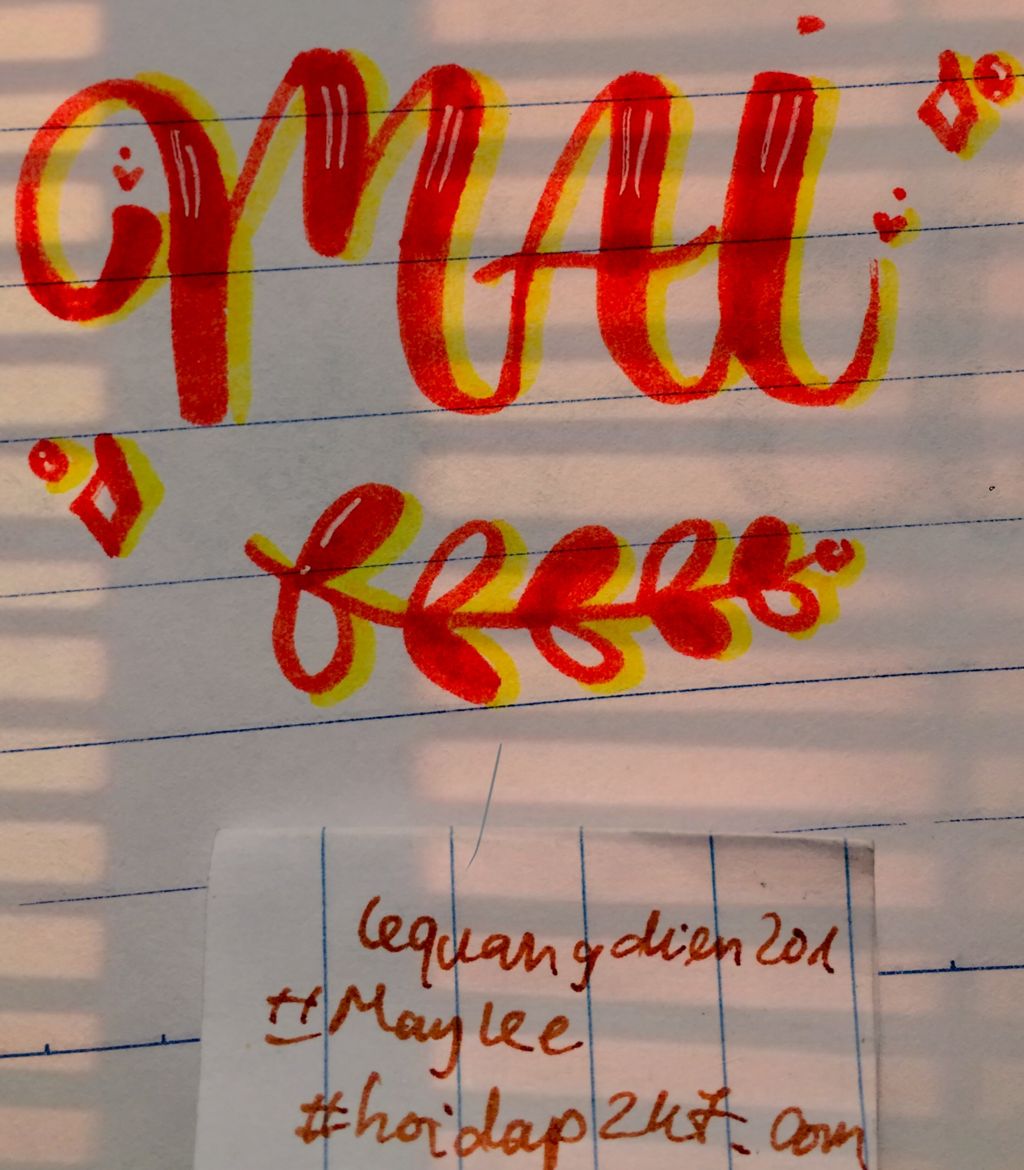 MAi
lequangdien201
#Maylee
#hoidap2k7.com